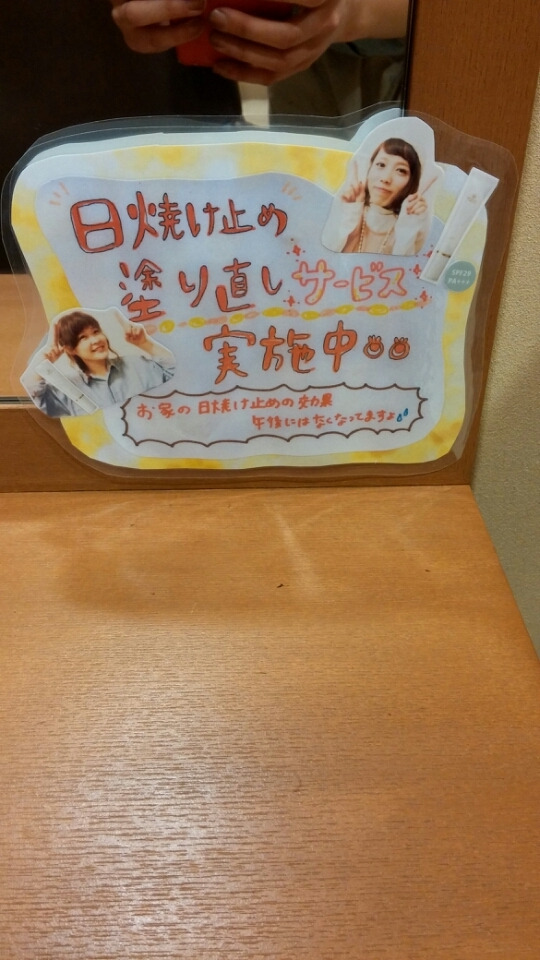 日焼け止め
塗り直しサービス
実施中
お家の日焼け止めの効果
午後にはなくなってますよ
SPF20